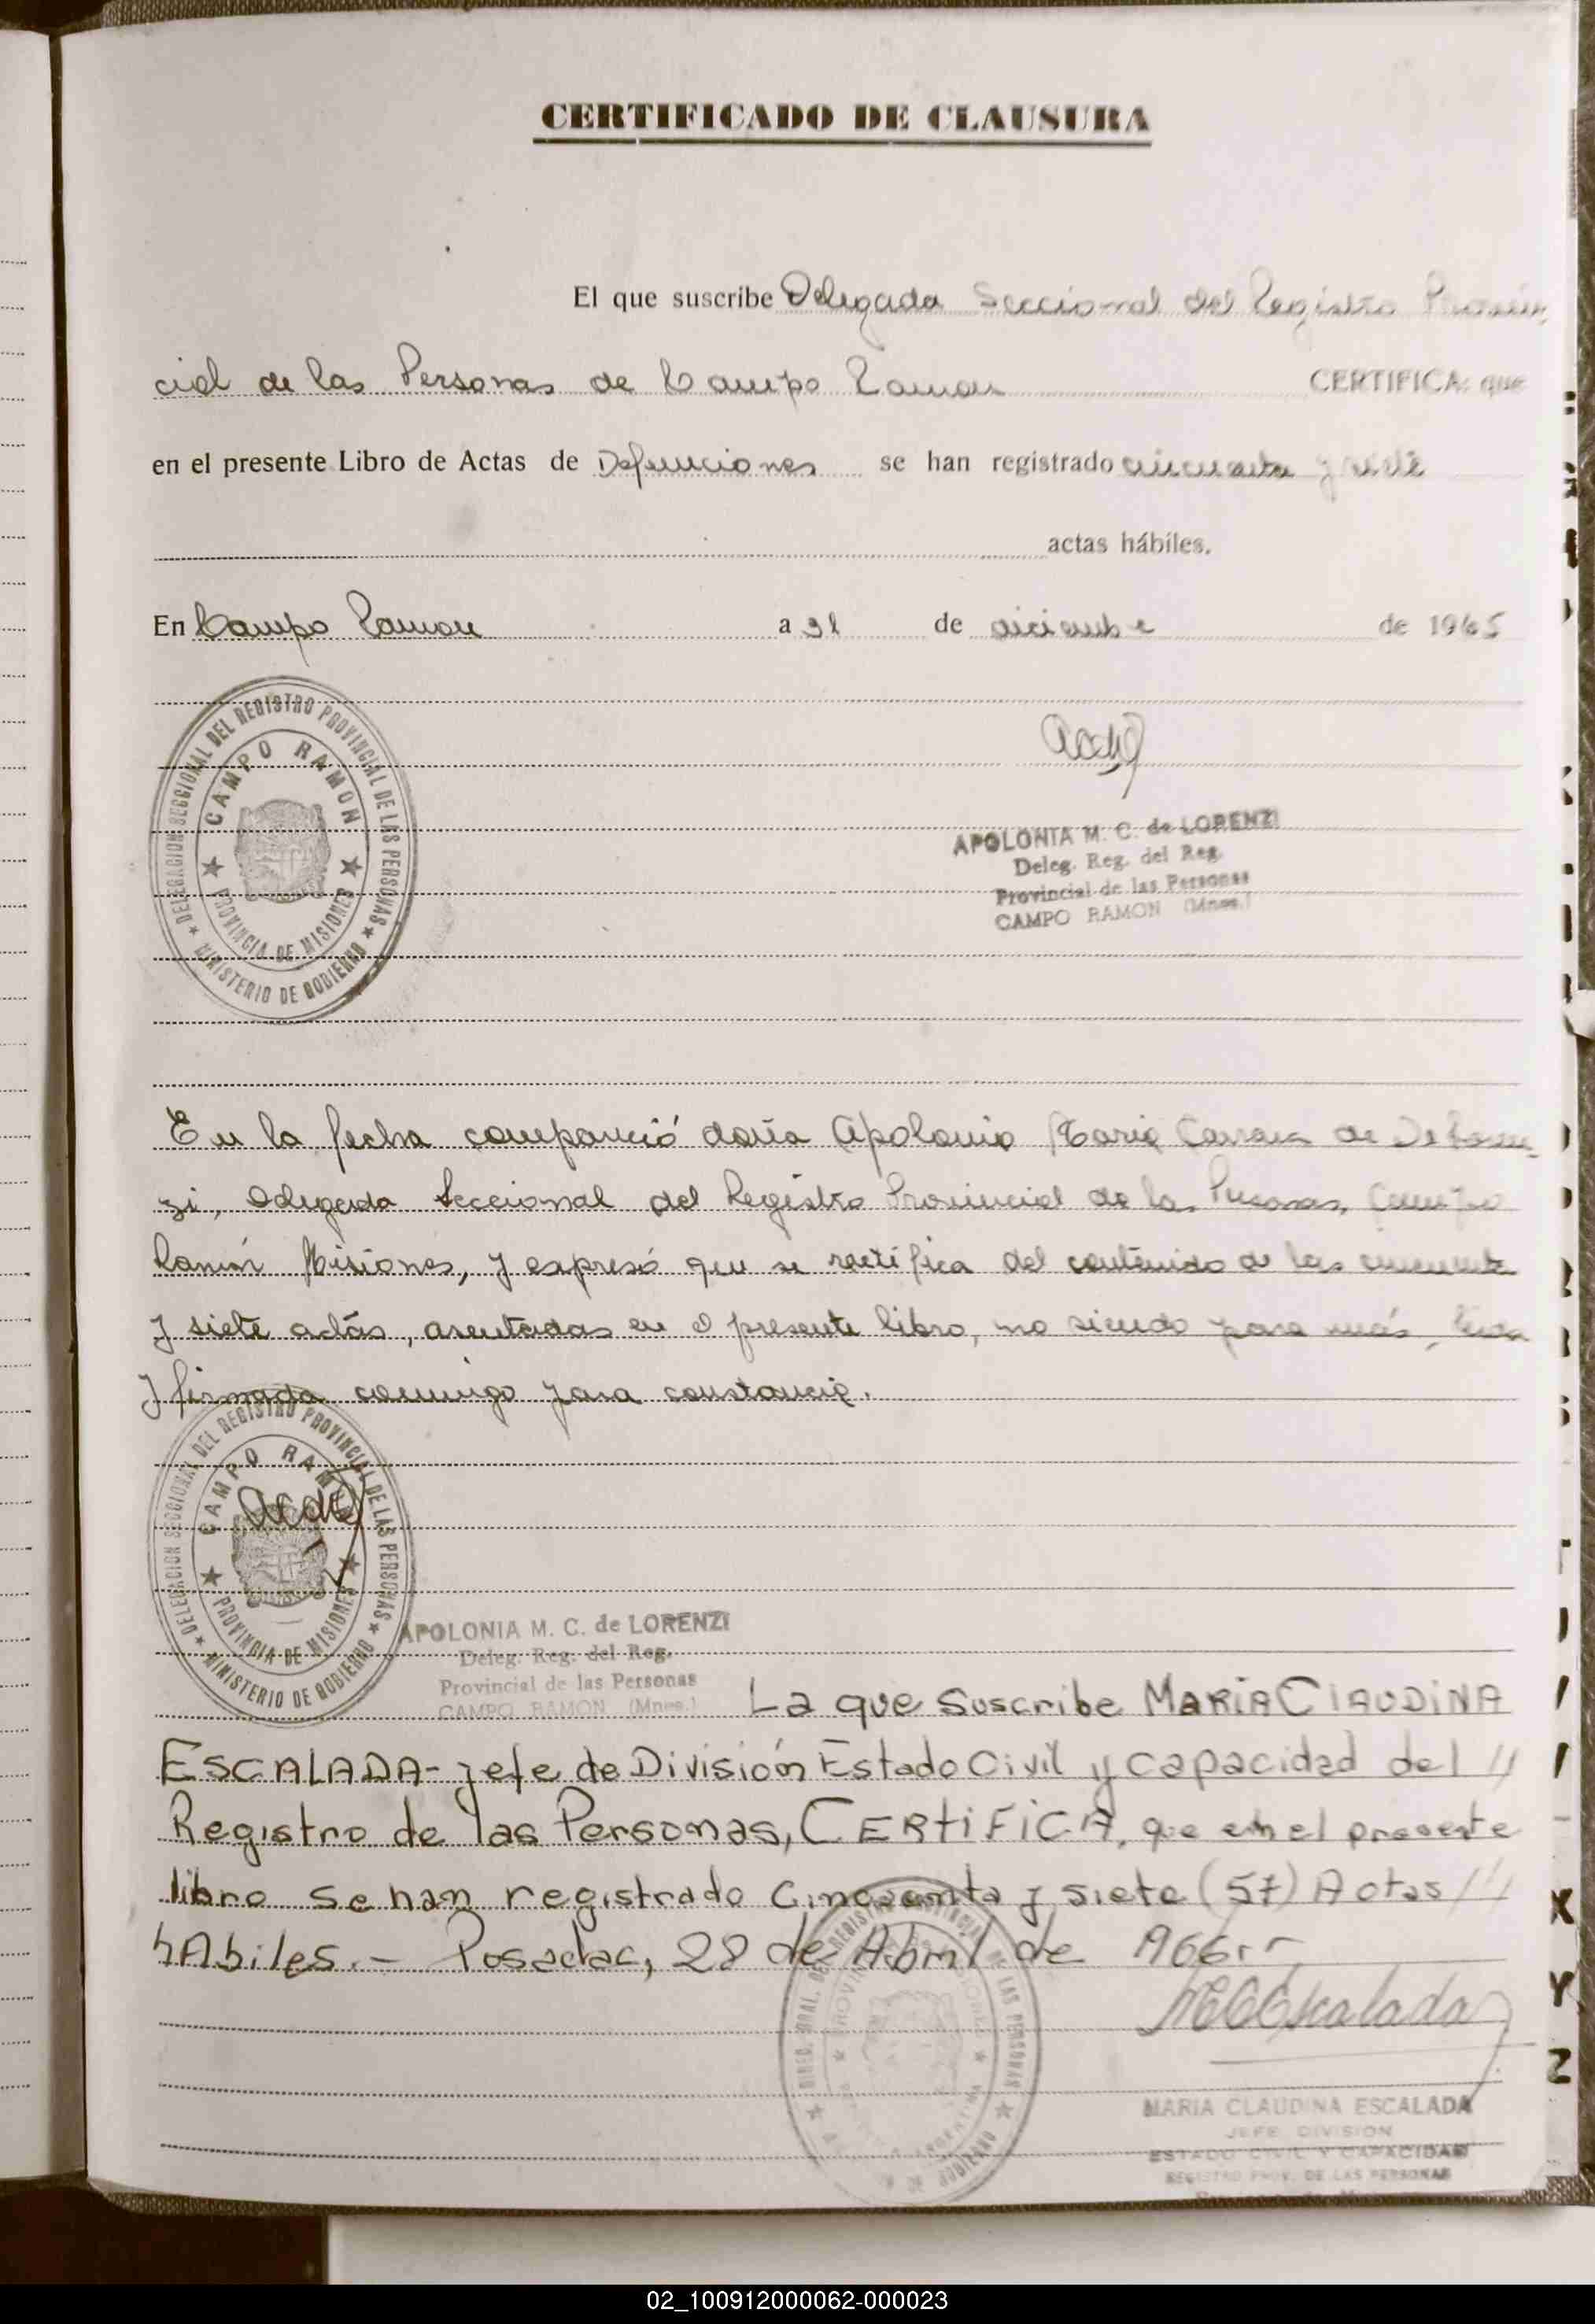 CERTIFICADO DE CLAUSURA
El que suscribe Delegada Seccional del Registro Provin
cial de las Personas de Campo Ramon CERTIFICA: que
en el presente Libro de Actas de Defunciones se han registrado cincuenta y siete
actas hábiles.
En Campo Ramon a 31 de diciembre de 1965
DELEGACION SECCIONAL DEL REGISTRO PROVINCIAL DE LAS PERSONAS
CAMPO RAMON
PROVINCIA DE MISIONES
MINISTERIO DE GOBIERNO
APOLONIA M. C. de LORENZI
Deleg. Reg. del Reg.
Provincial de las Personas
CAMPO RAMON (Mnes.)
En la fecha compareció doña Apolonia Maria de De Loren
zi, Delegada Seccional del Registro Provincial de las Personas, Campo
Ramón Misiones, y expresó que se ratifica del contenido de las cincuenta
y siete actas, asentadas en el presente libro, no siendo para más, leida
y firmada conmigo para constancia.
DELEGACION SECCIONAL DEL REGISTRO PROVINCIAL DE LAS PERSONAS
CAMPO RAM
PROVINCIA DE MISIONES
MINISTERIO DE GOBIERNO
APOLONIA M. C. de LORENZI
Deleg. Reg. del Reg.
Provincial de las Personas
CAMPO RAMON (Mnes.)
La que suscribe MARIA CLAUDINA
ESCALADA- jefe de División Estado Civil y Capacidad del //
Registro de las Personas, CERTIFICA, que en el presente
libro se han registrado Cincuenta y siete (57) Actas //
hábiles.- Posadas, 28 de Abril de 1966.-
MCEscalada
MARIA CLAUDINA ESCALADA
JEFE DIVISION
ESTADO CIVIL Y CAPACIDAD
REGISTRO PROV. DE LAS PERSONAS
X
Y
Z
02_100912000062-000023